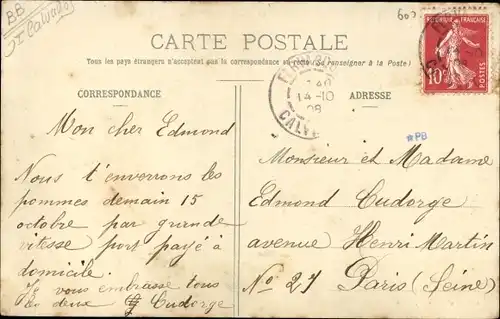 BB
Calvados
CARTE POSTALE
Tous les pays étrangers n'acceptent pas la correspondance au recto (Se renseigner à la Poste)
CORRESPONDANCE
ADRESSE
14-10
08
CALV
REPUBLIQUE FRANÇAISE
10c
POSTES
*PB
Mon cher Edmond
Nous t'enverrons les
pommes demain 15
octobre par grande
vitesse port payé à
domicile.
Je vous embrasse tous
les deux Cudorge
Monsieur et Madame
Edmond Cudorge
avenue Henri Martin
No 27 Paris (Seine)